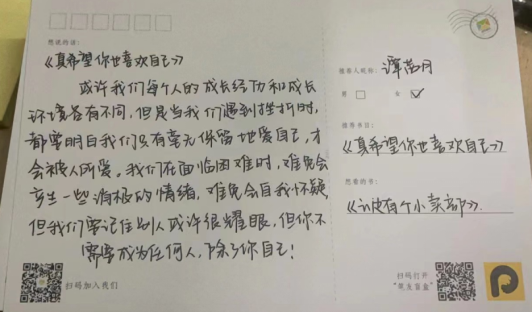 想说的话：
《真希望你也喜欢自己》
或许我们每个人的成长经历和成长
环境各有不同，但是当我们遇到挫折时，
都要明白我们只有毫无保留地爱自己，才
会被人所爱。我们在面临困难时，难免会
产生一些消极的情绪，难免会自我怀疑，
但我们要记住别人或许很耀眼，但你不
需要成为任何人，除了你自己！
扫码加入我们
推荐人昵称：谭芮月
男 女
推荐书目：
《真希望你也喜欢自己》
想看的书：
《云边有个小卖部》
扫码打开
“笔友盲盒”